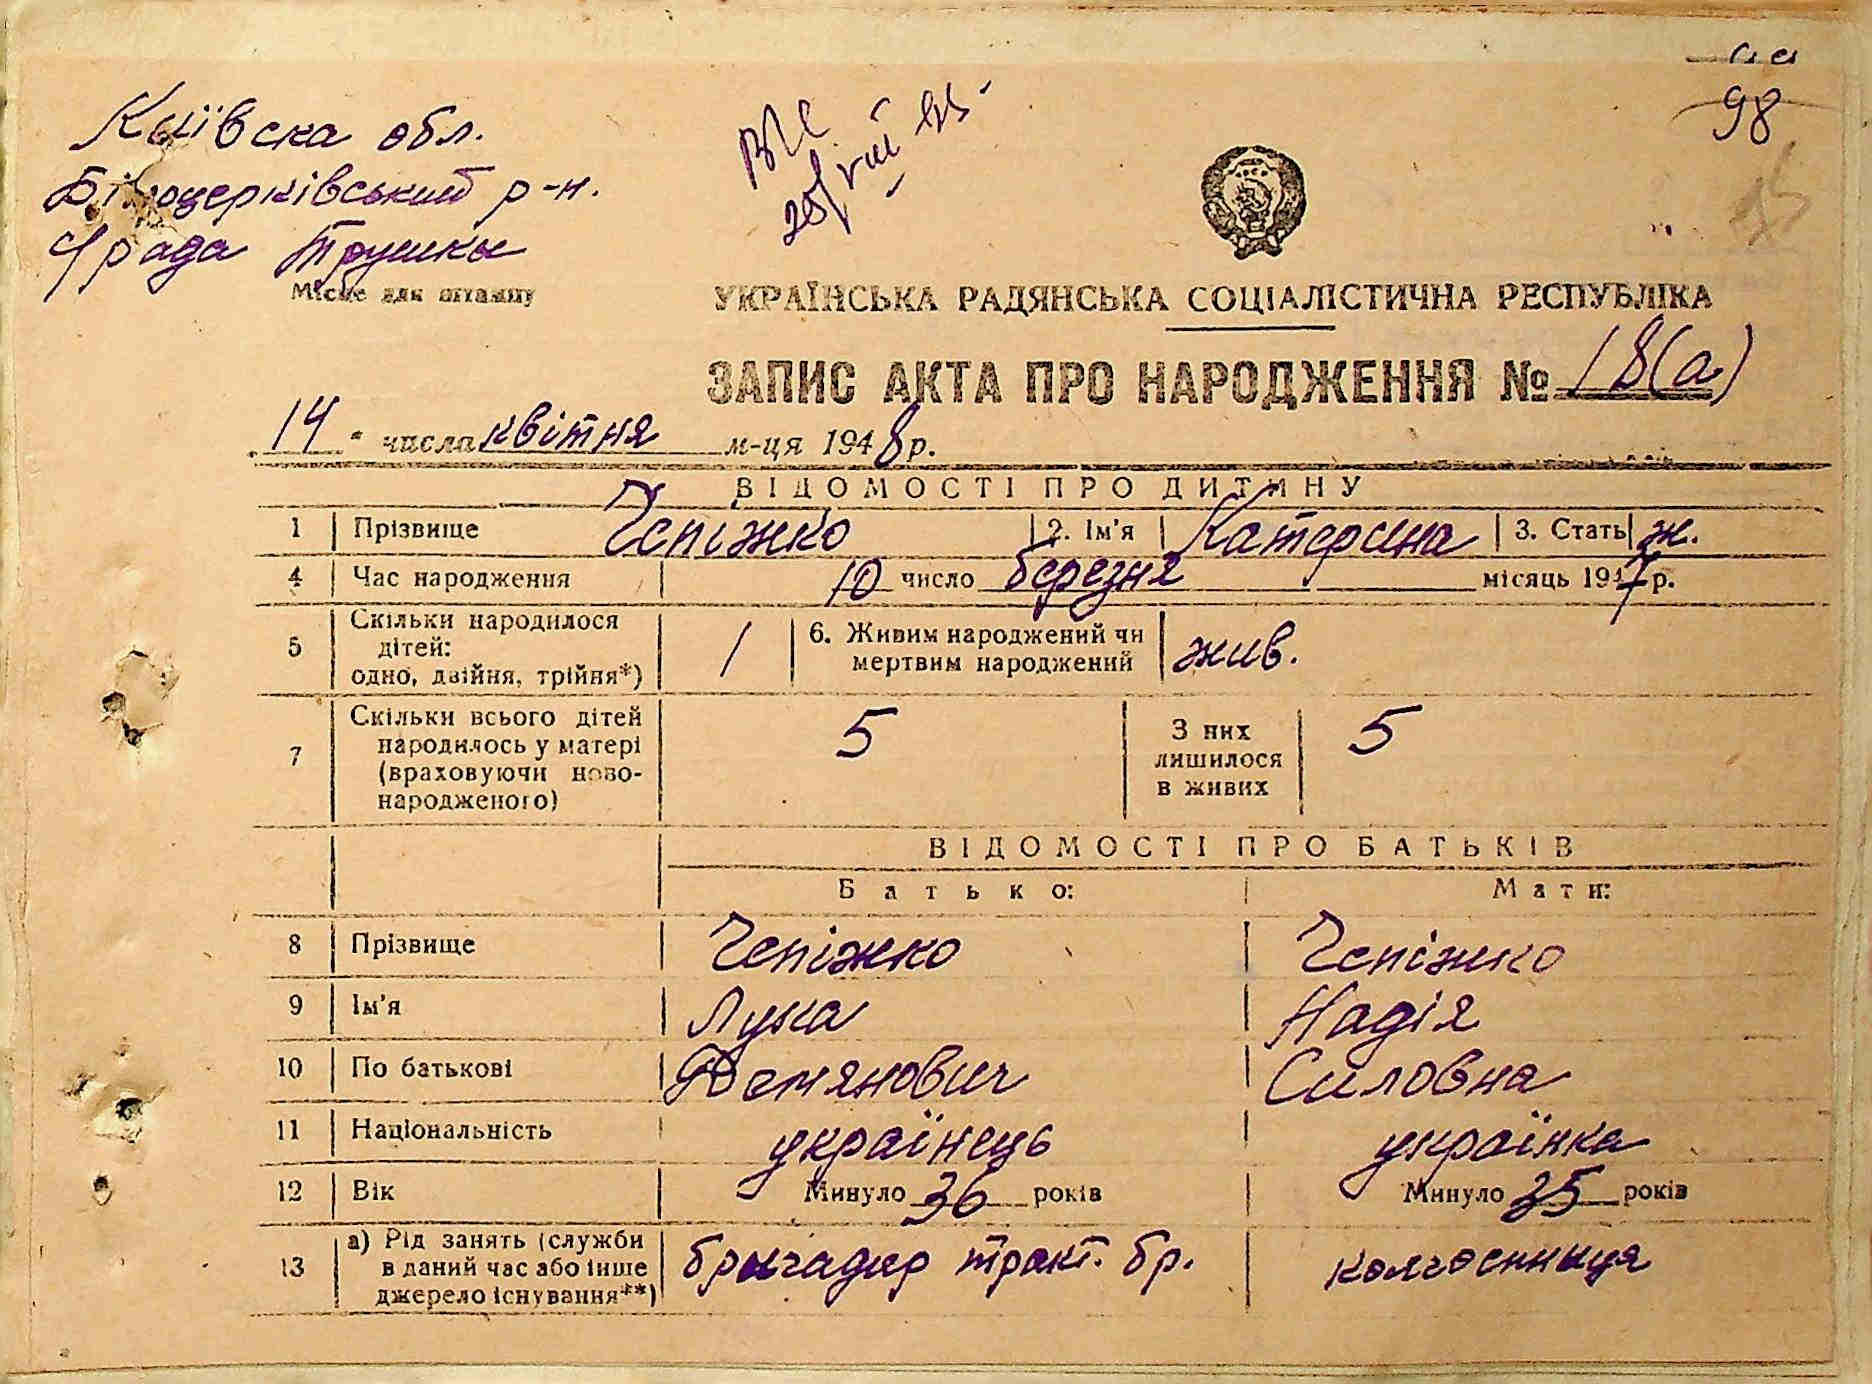 98
Київска обл.
Білоцерківський р-н.
рада Трушки
Місце для штампу
УКРАЇНСЬКА РАДЯНСЬКА СОЦІАЛІСТИЧНА РЕСПУБЛІКА
ЗАПИС АКТА ПРО НАРОДЖЕННЯ № 18(а)
14 " числа квітня м-ця 1948 р.
ВІДОМОСТІ ПРО ДИТИНУ
1 Прізвище Чепіжко 2. Ім'я Катерина 3. Стать ж.
4 Час народження 10 число березня місяць 1947 р.
5 Скільки народилося дітей: одно, двійня, трійня*) 1 6. Живим народжений чи мертвим народжений жив.
7 Скільки всього дітей народилось у матері (враховуючи ново-народженого) 5 З них лишилося в живих 5
ВІДОМОСТІ ПРО БАТЬКІВ
Батько: Мати:
8 Прізвище Чепіжко Чепіжко
9 Ім'я Лука Надія
10 По батькові Демянович Силовна
11 Національність українець українка
12 Вік Минуло 36 років Минуло 35 років
13 а) Рід занять (служби в даний час або інше джерело існування**) бригадир тракт. бр. колгоспниця